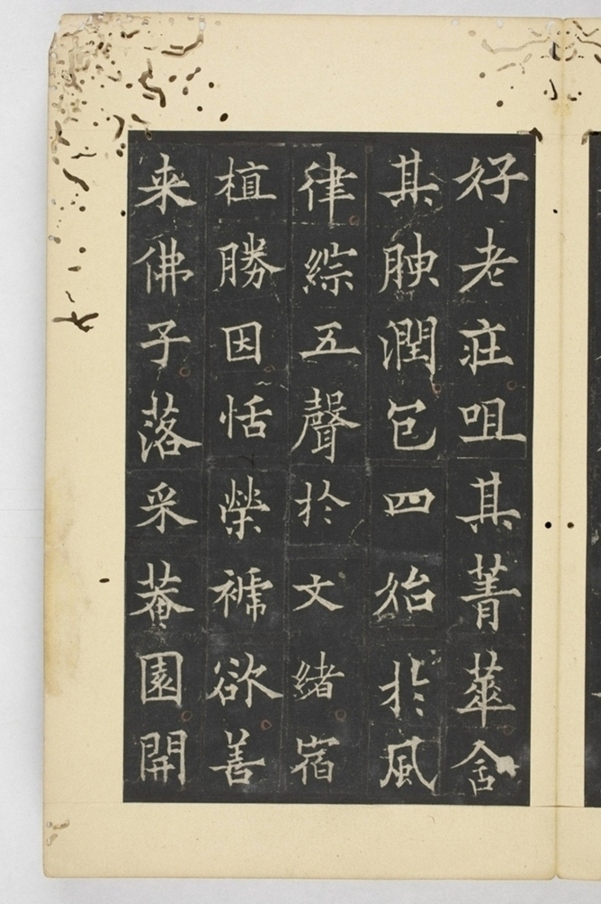 好老莊咀其菁華含
其腴潤包四始於風
律綜五聲於文緒宿
植勝因恬榮褫欲善
来佛子落采菴園開